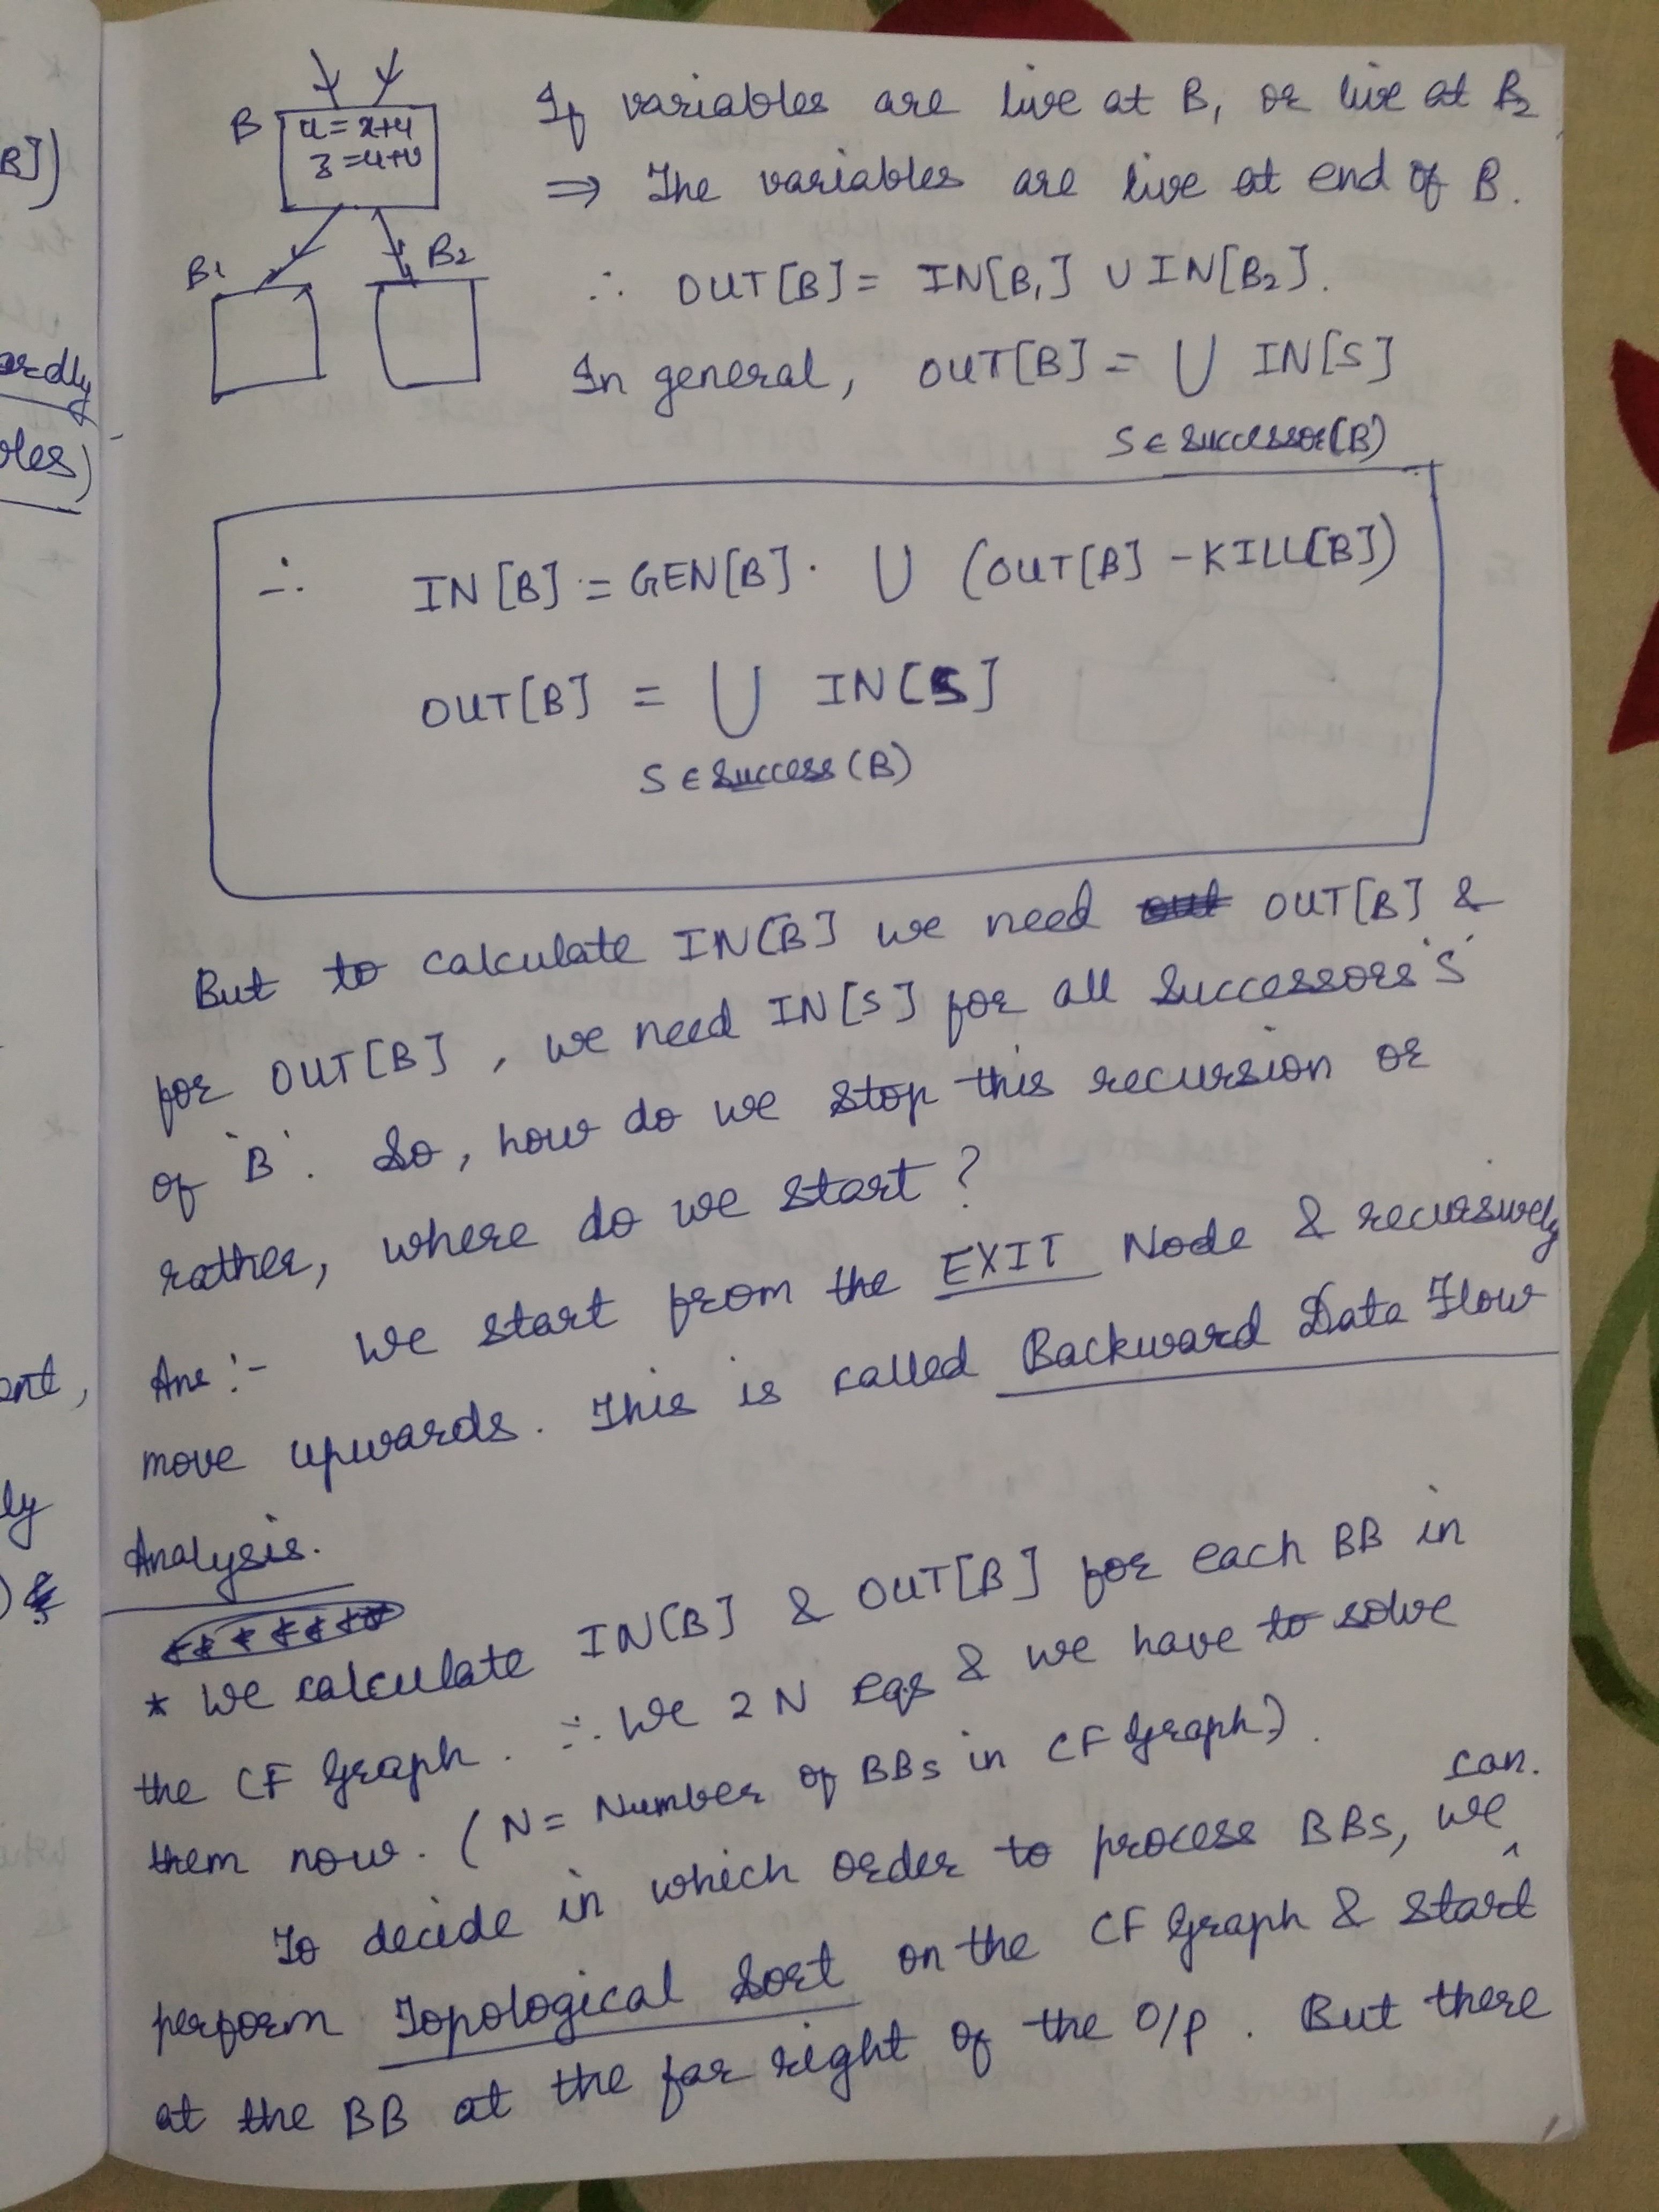 B])
ardly
oles)
ent,
ly
) &
B
u=x+y
z=u+v
B1
B2
If variables are live at B₁ or live at B₂
⇒ The variables are live at end of B.
∴ OUT[B] = IN[B₁] ∪ IN[B₂].
In general, OUT[B] = ∪ IN[S]
S ∈ Successor(B)
∴ IN[B] = GEN[B]. ∪ (OUT[B] - KILL[B])
OUT[B] = ∪ IN[S]
S ∈ Success(B)
But to calculate IN[B] we need out OUT[B] &
for OUT[B], we need IN[S] for all Successors 'S'
of 'B'. So, how do we stop this recursion or
rather, where do we start?
Ans:- We start from the EXIT Node & recursively
move upwards. This is called Backward Data Flow
Analysis.
*******
* We calculate IN[B] & OUT[B] for each BB in
the CF Graph. ∴ We 2N eqs & we have to solve
them now. (N = Number of BBs in CF Graph).
To decide in which order to process BBs, we can.
perform Topological Sort on the CF Graph & start
at the BB at the far right of the O/P. But there